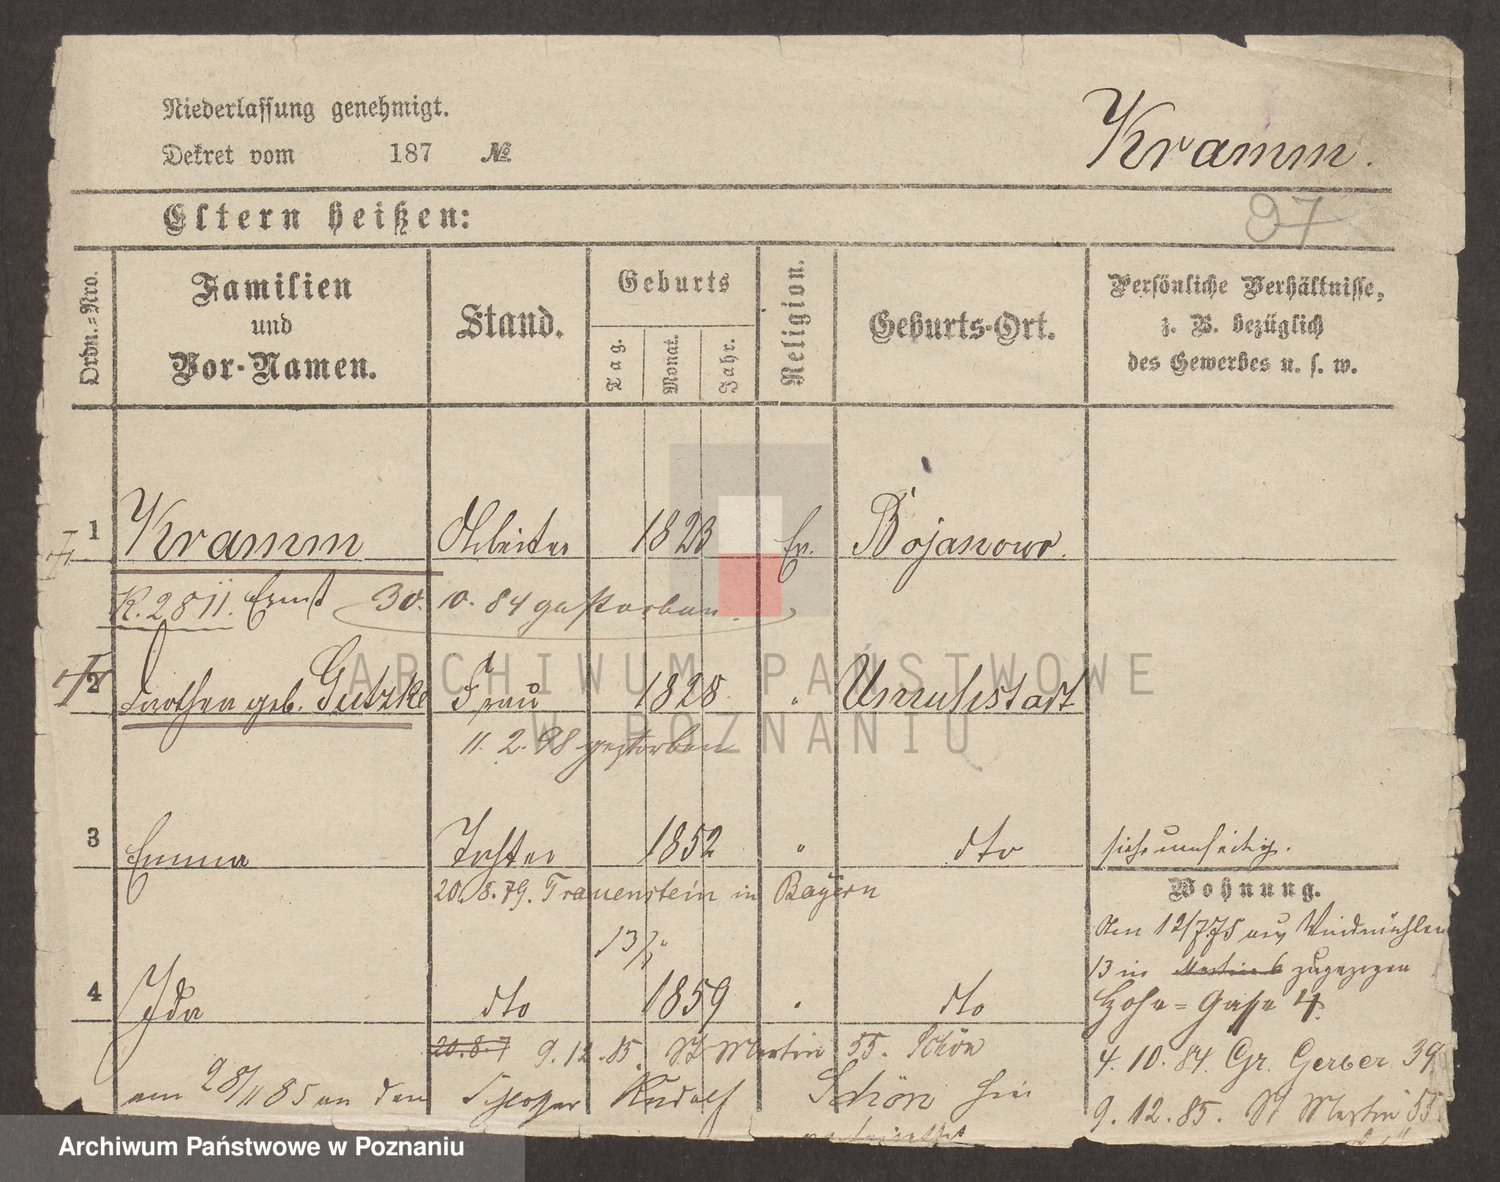 Niederlassung genehmigt.
Dekret vom 187 №
Kramm.
Eltern heißen:
97
Ordn.-Nro.
Familien
und
Vor-Namen.
Stand.
Geburts
Tag.
Monat.
Jahr.
Religion.
Geburts-Ort.
Persönliche Verhältnisse,
z. B. bezüglich
des Gewerbes u. s. w.
1 Kramm Arbeiter 1823 Ev. Bojanowo.
K. 2811. Ernst 30. 10. 84 gestorben
2 geb. Gutzke Frau 1828. " Unruhstadt
11. 2. 98 gestorben
3 Emma Tochter 1852 " dto
20.8.79. Trauenstein in Bayern
Wohnung.
Den 12/7.75 aus Windmühlen
13 in Martin 6 zugezogen
13/7
4 Ida dto 1859 " dto
Hohe-Gasse 4.
20.8.7 9.12.85. St Martin 55. Schön
4. 10. 84. Gr. Gerber 39
am 28/11 85 an den Schlosser Rudolf Schön hier
9. 12. 85. St Martin 55
ARCHIWUM PAŃSTWOWE
W POZNANIU
Archiwum Państwowe w Poznaniu